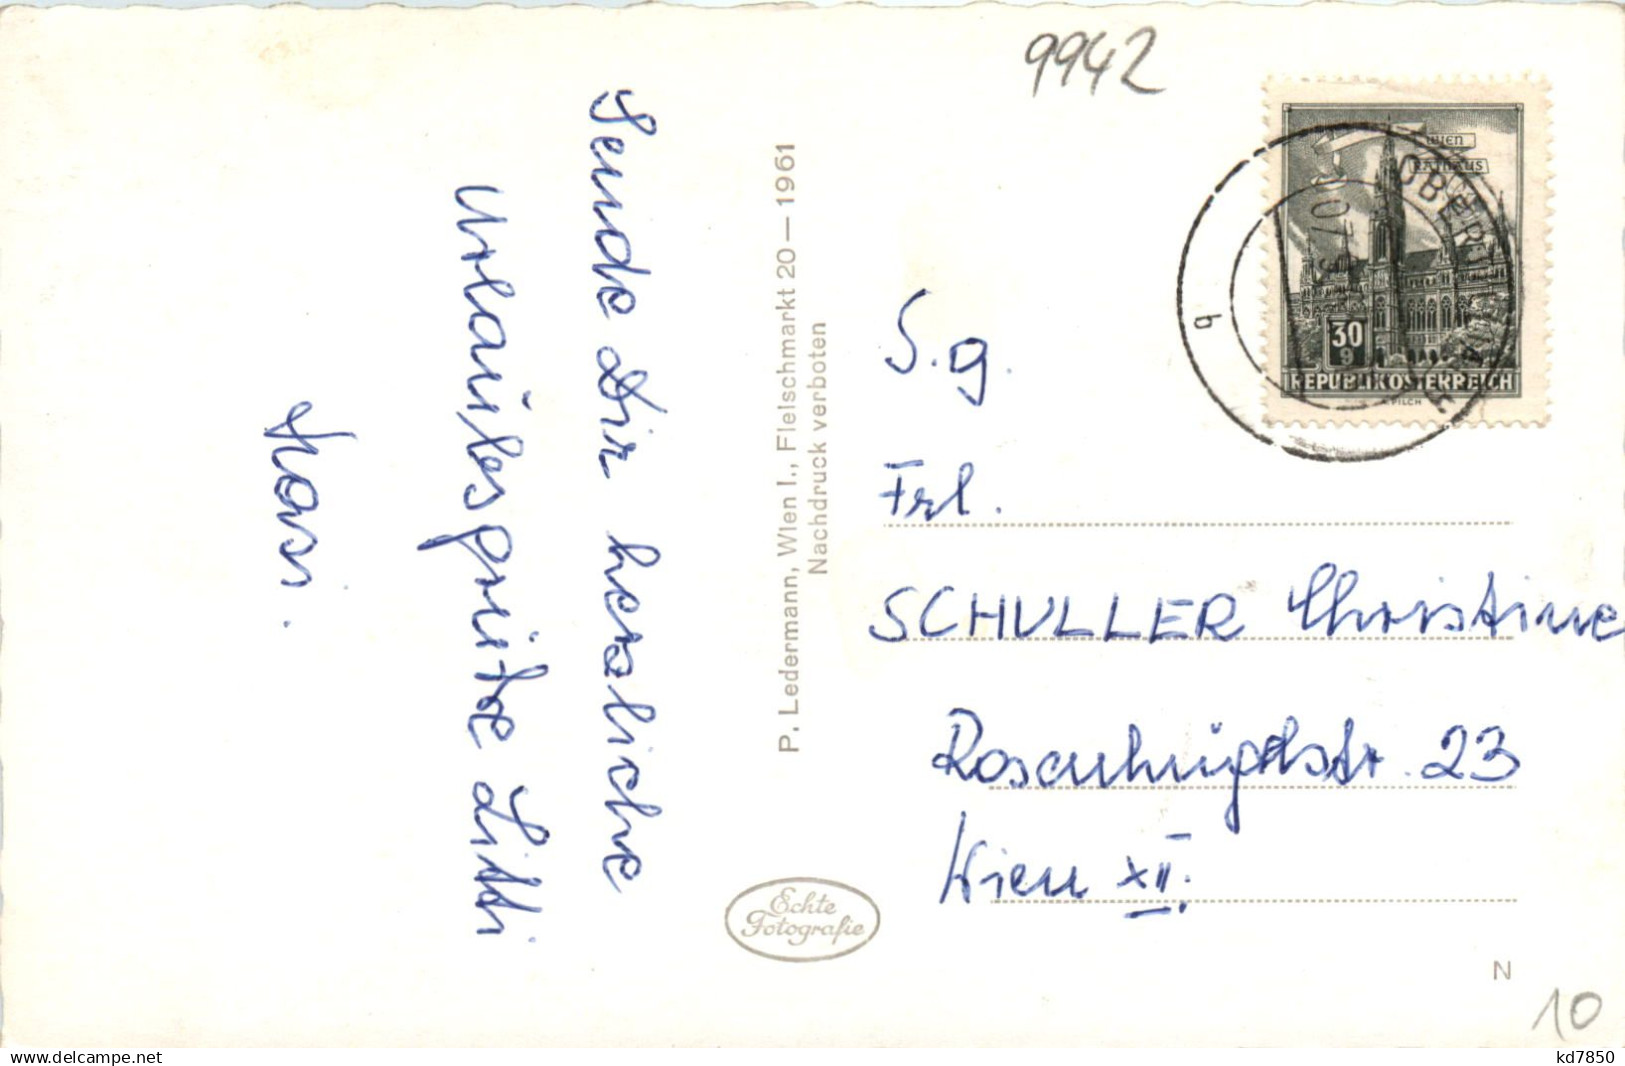 9942
WIEN
RATHAUS
30
g
REPUBLIK ÖSTERREICH
A. PILCH
OBER
b
Sende Dir herzliche
Urlaubsgrüße Litti
Hasi.
P. Ledermann, Wien I., Fleischmarkt 20 — 1961
Nachdruck verboten
Echte
Fotografie
S. g.
Frl.
SCHULLER Christine
Rosenhügelstr. 23
Wien XII.
N
10
www.delcampe.net
kd7850